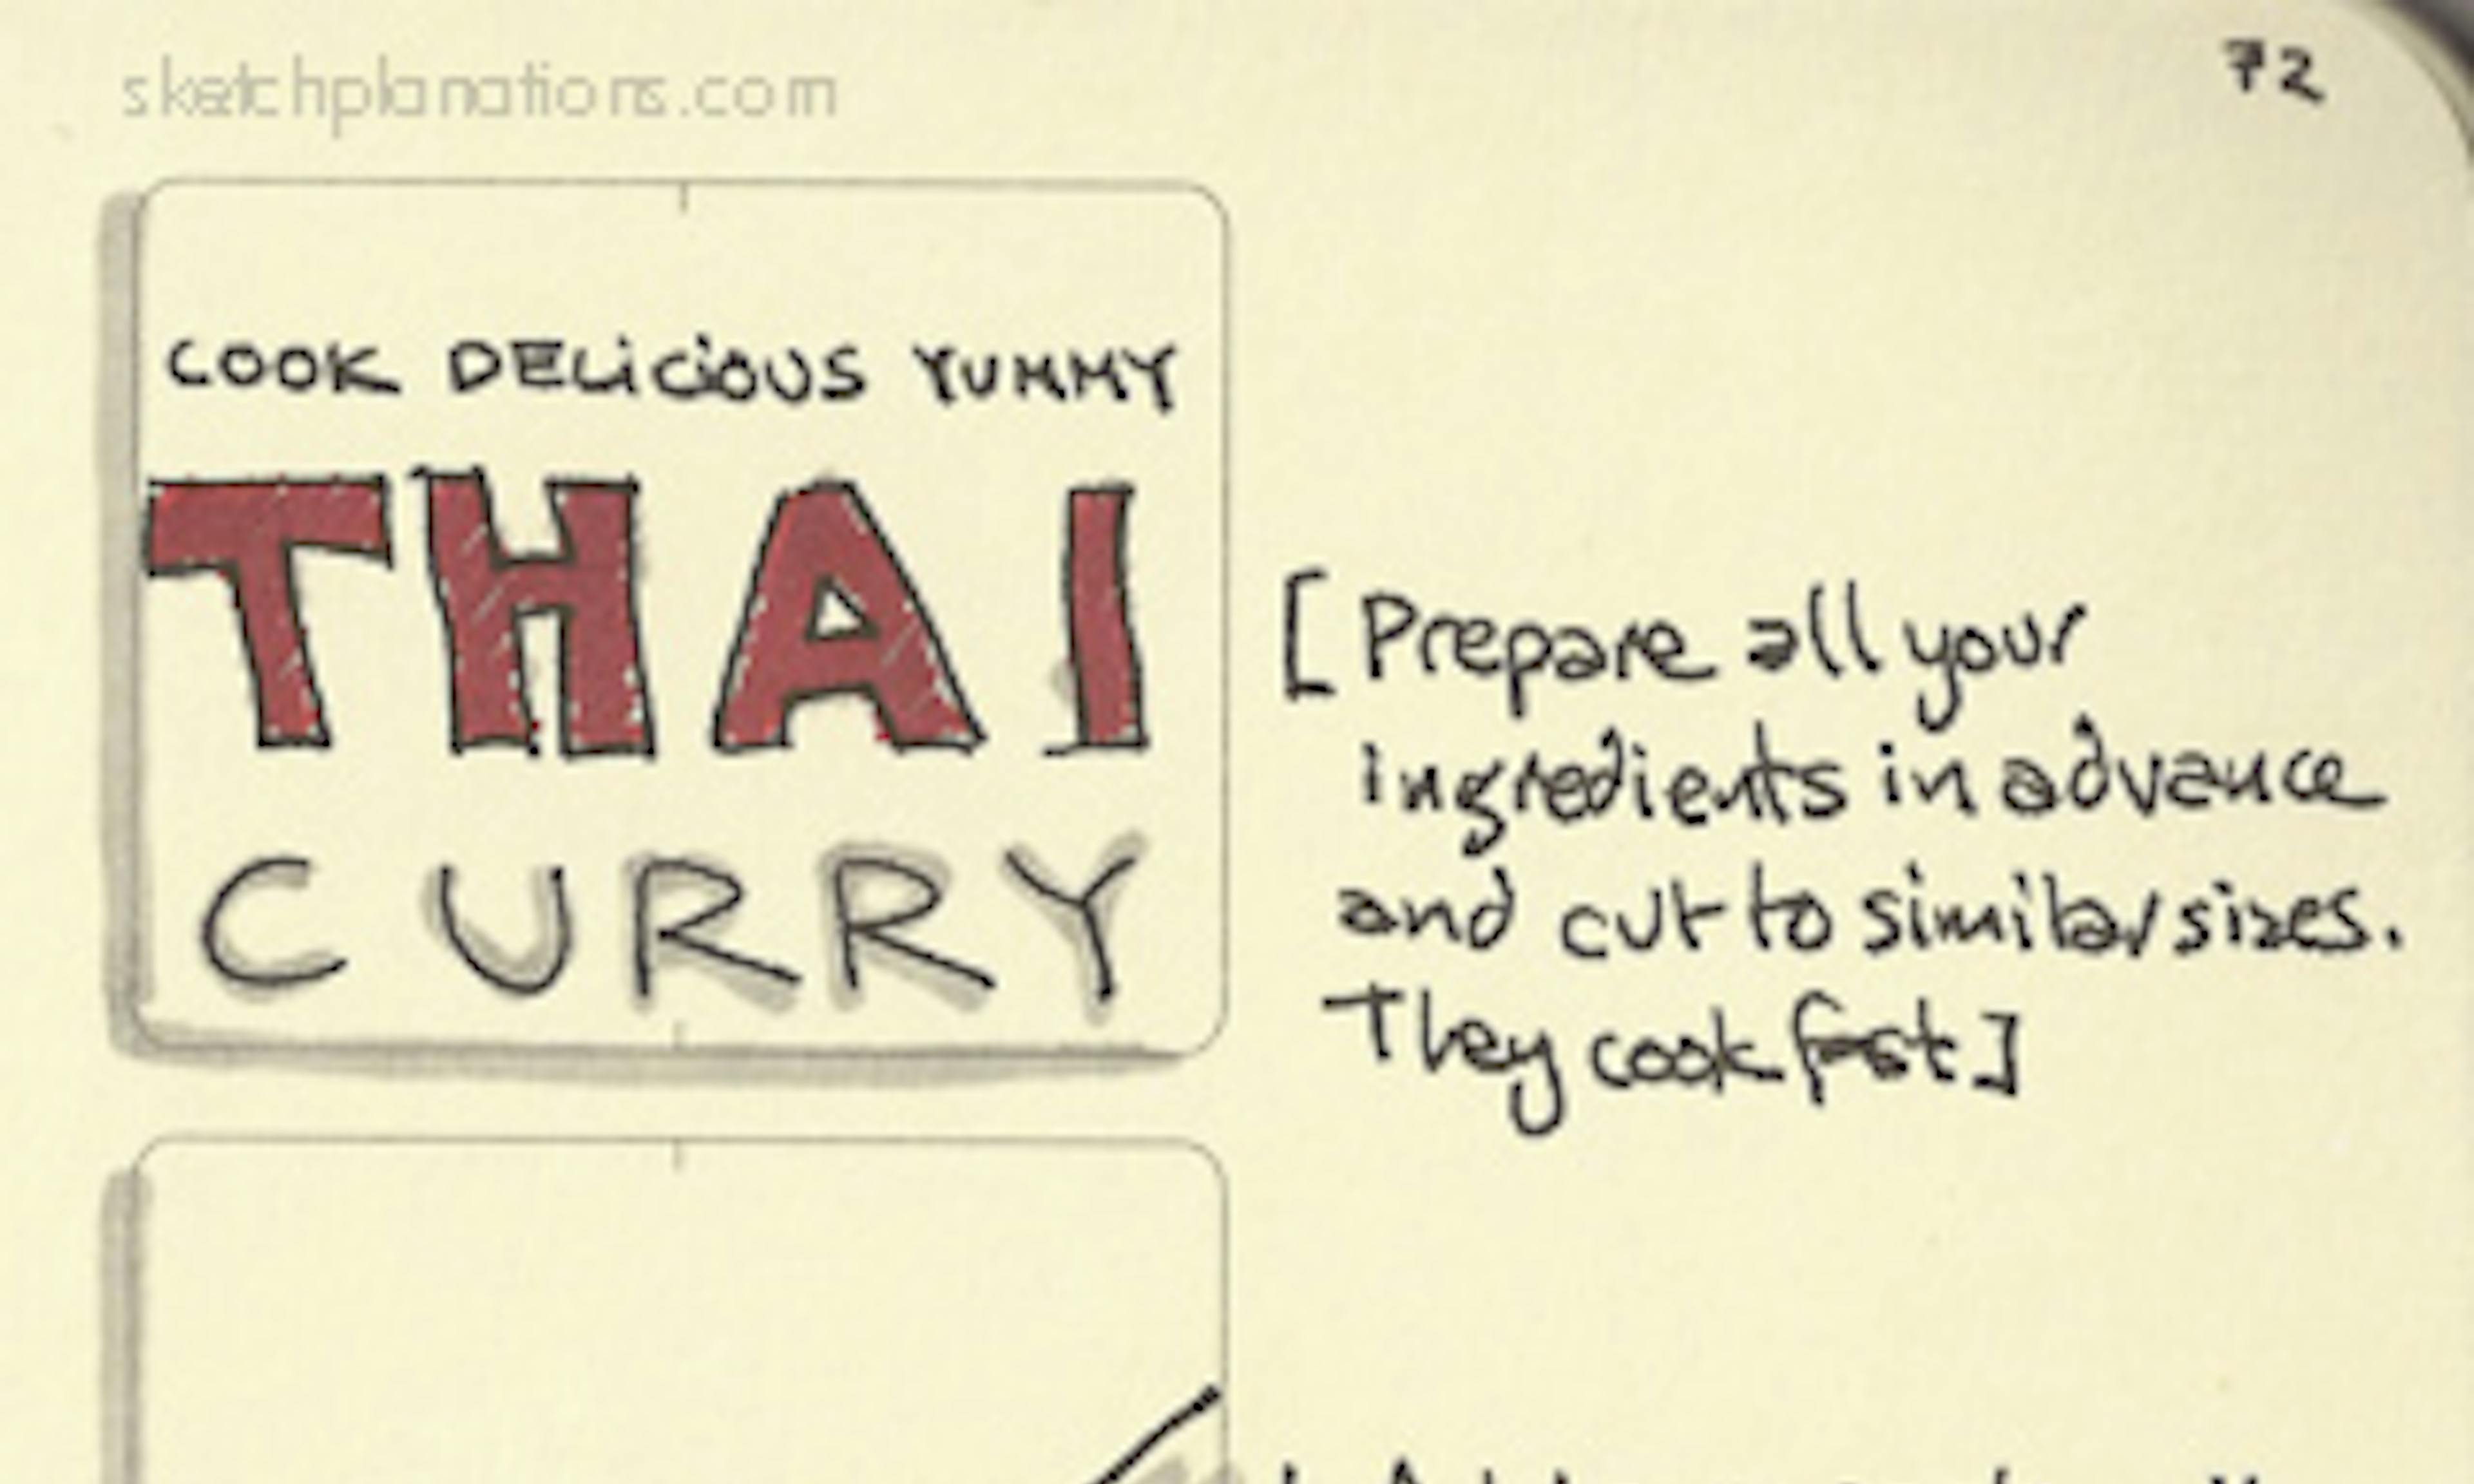 sketchplanations.com
72
COOK DELiCiOUS YUMMY
THAI
CURRY
[Prepare all your
ingredients in advance
and cut to similar sizes.
They cook fast]